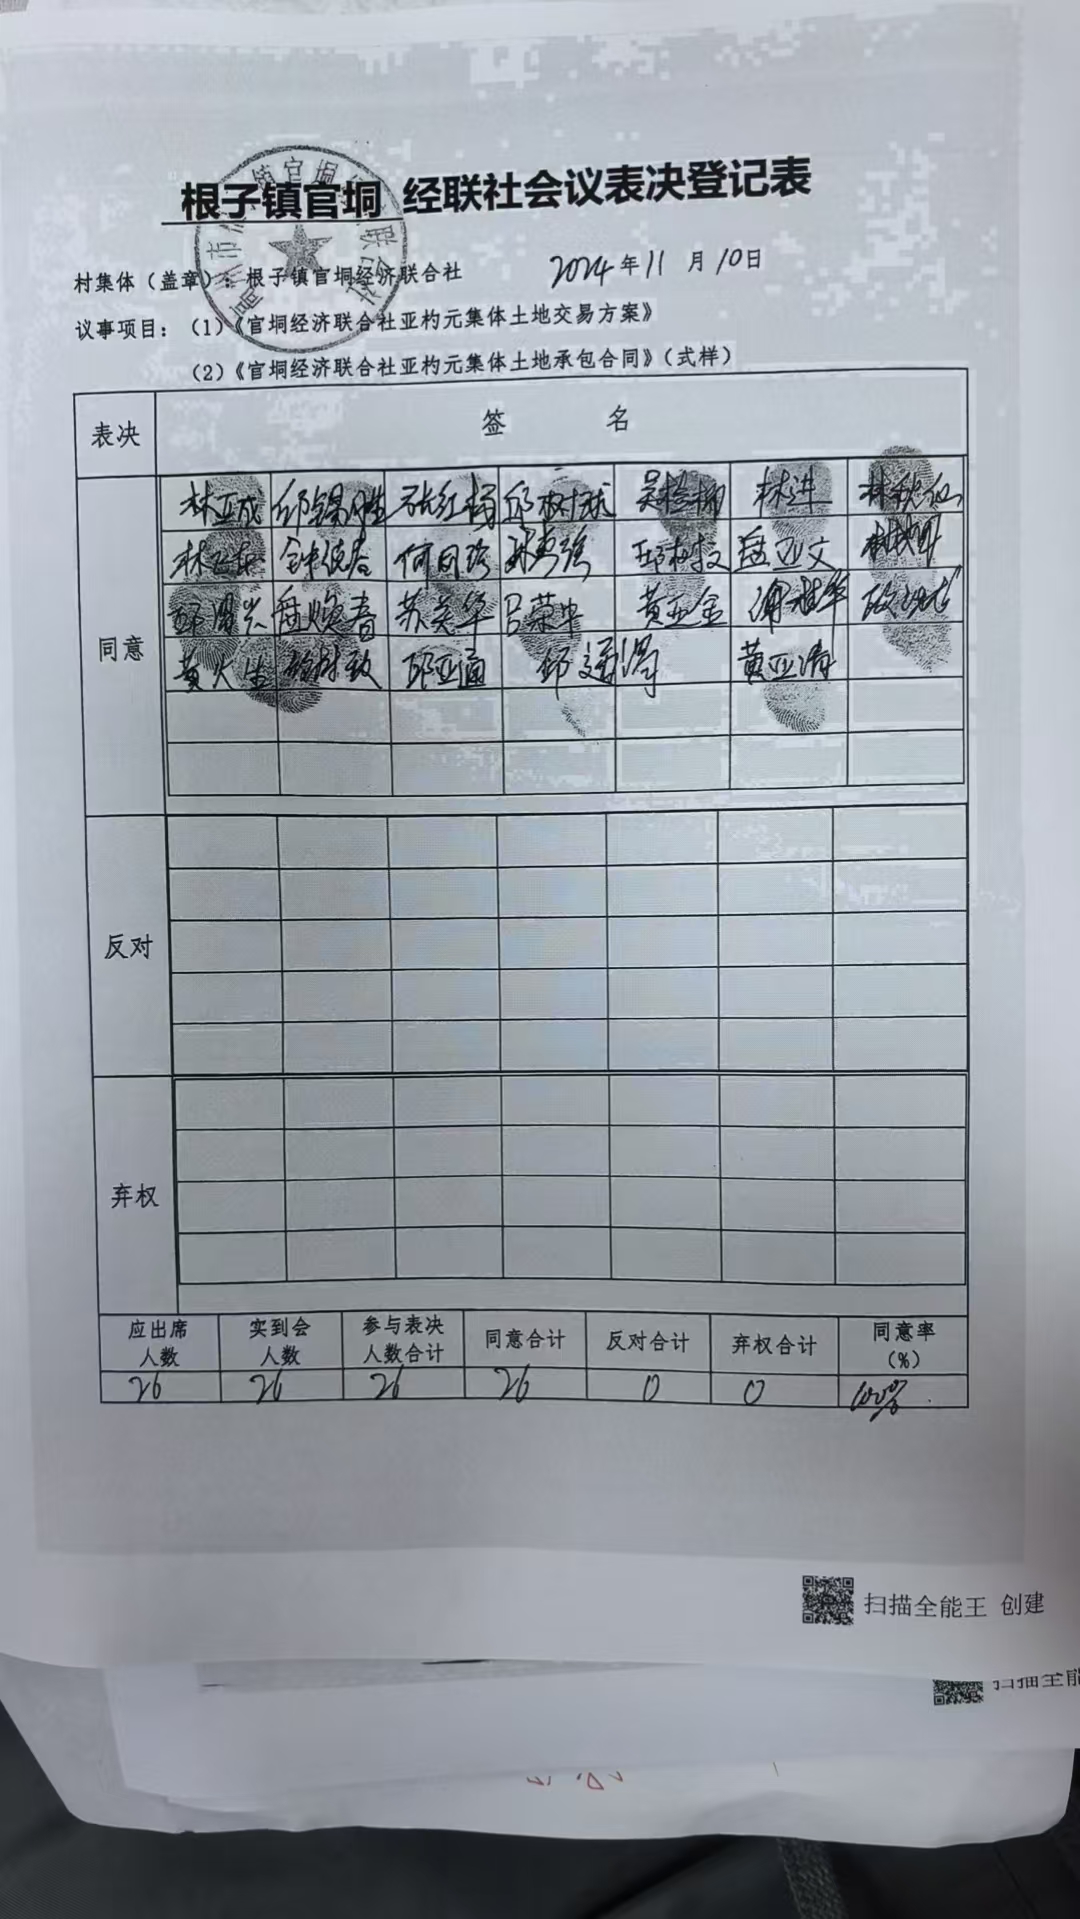 根子镇官垌 经联社会议表决登记表
村集体（盖章）：根子镇官垌经济联合社 2024年11月10日
议事项目：（1）《官垌经济联合社亚杓元集体土地交易方案》
（2）《官垌经济联合社亚杓元集体土地承包合同》（式样）
表决 签 名
同意
林亚成 张红梅 林进
何同珍 盘亚文
盘焕春 苏英华 吕荣中 黄亚金
黄火生 邱亚通 黄亚清
反对
弃权
应出席人数 实到会人数 参与表决人数合计 同意合计 反对合计 弃权合计 同意率（%）
26 26 26 26 0 0 100%
扫描全能王 创建
扫描全能